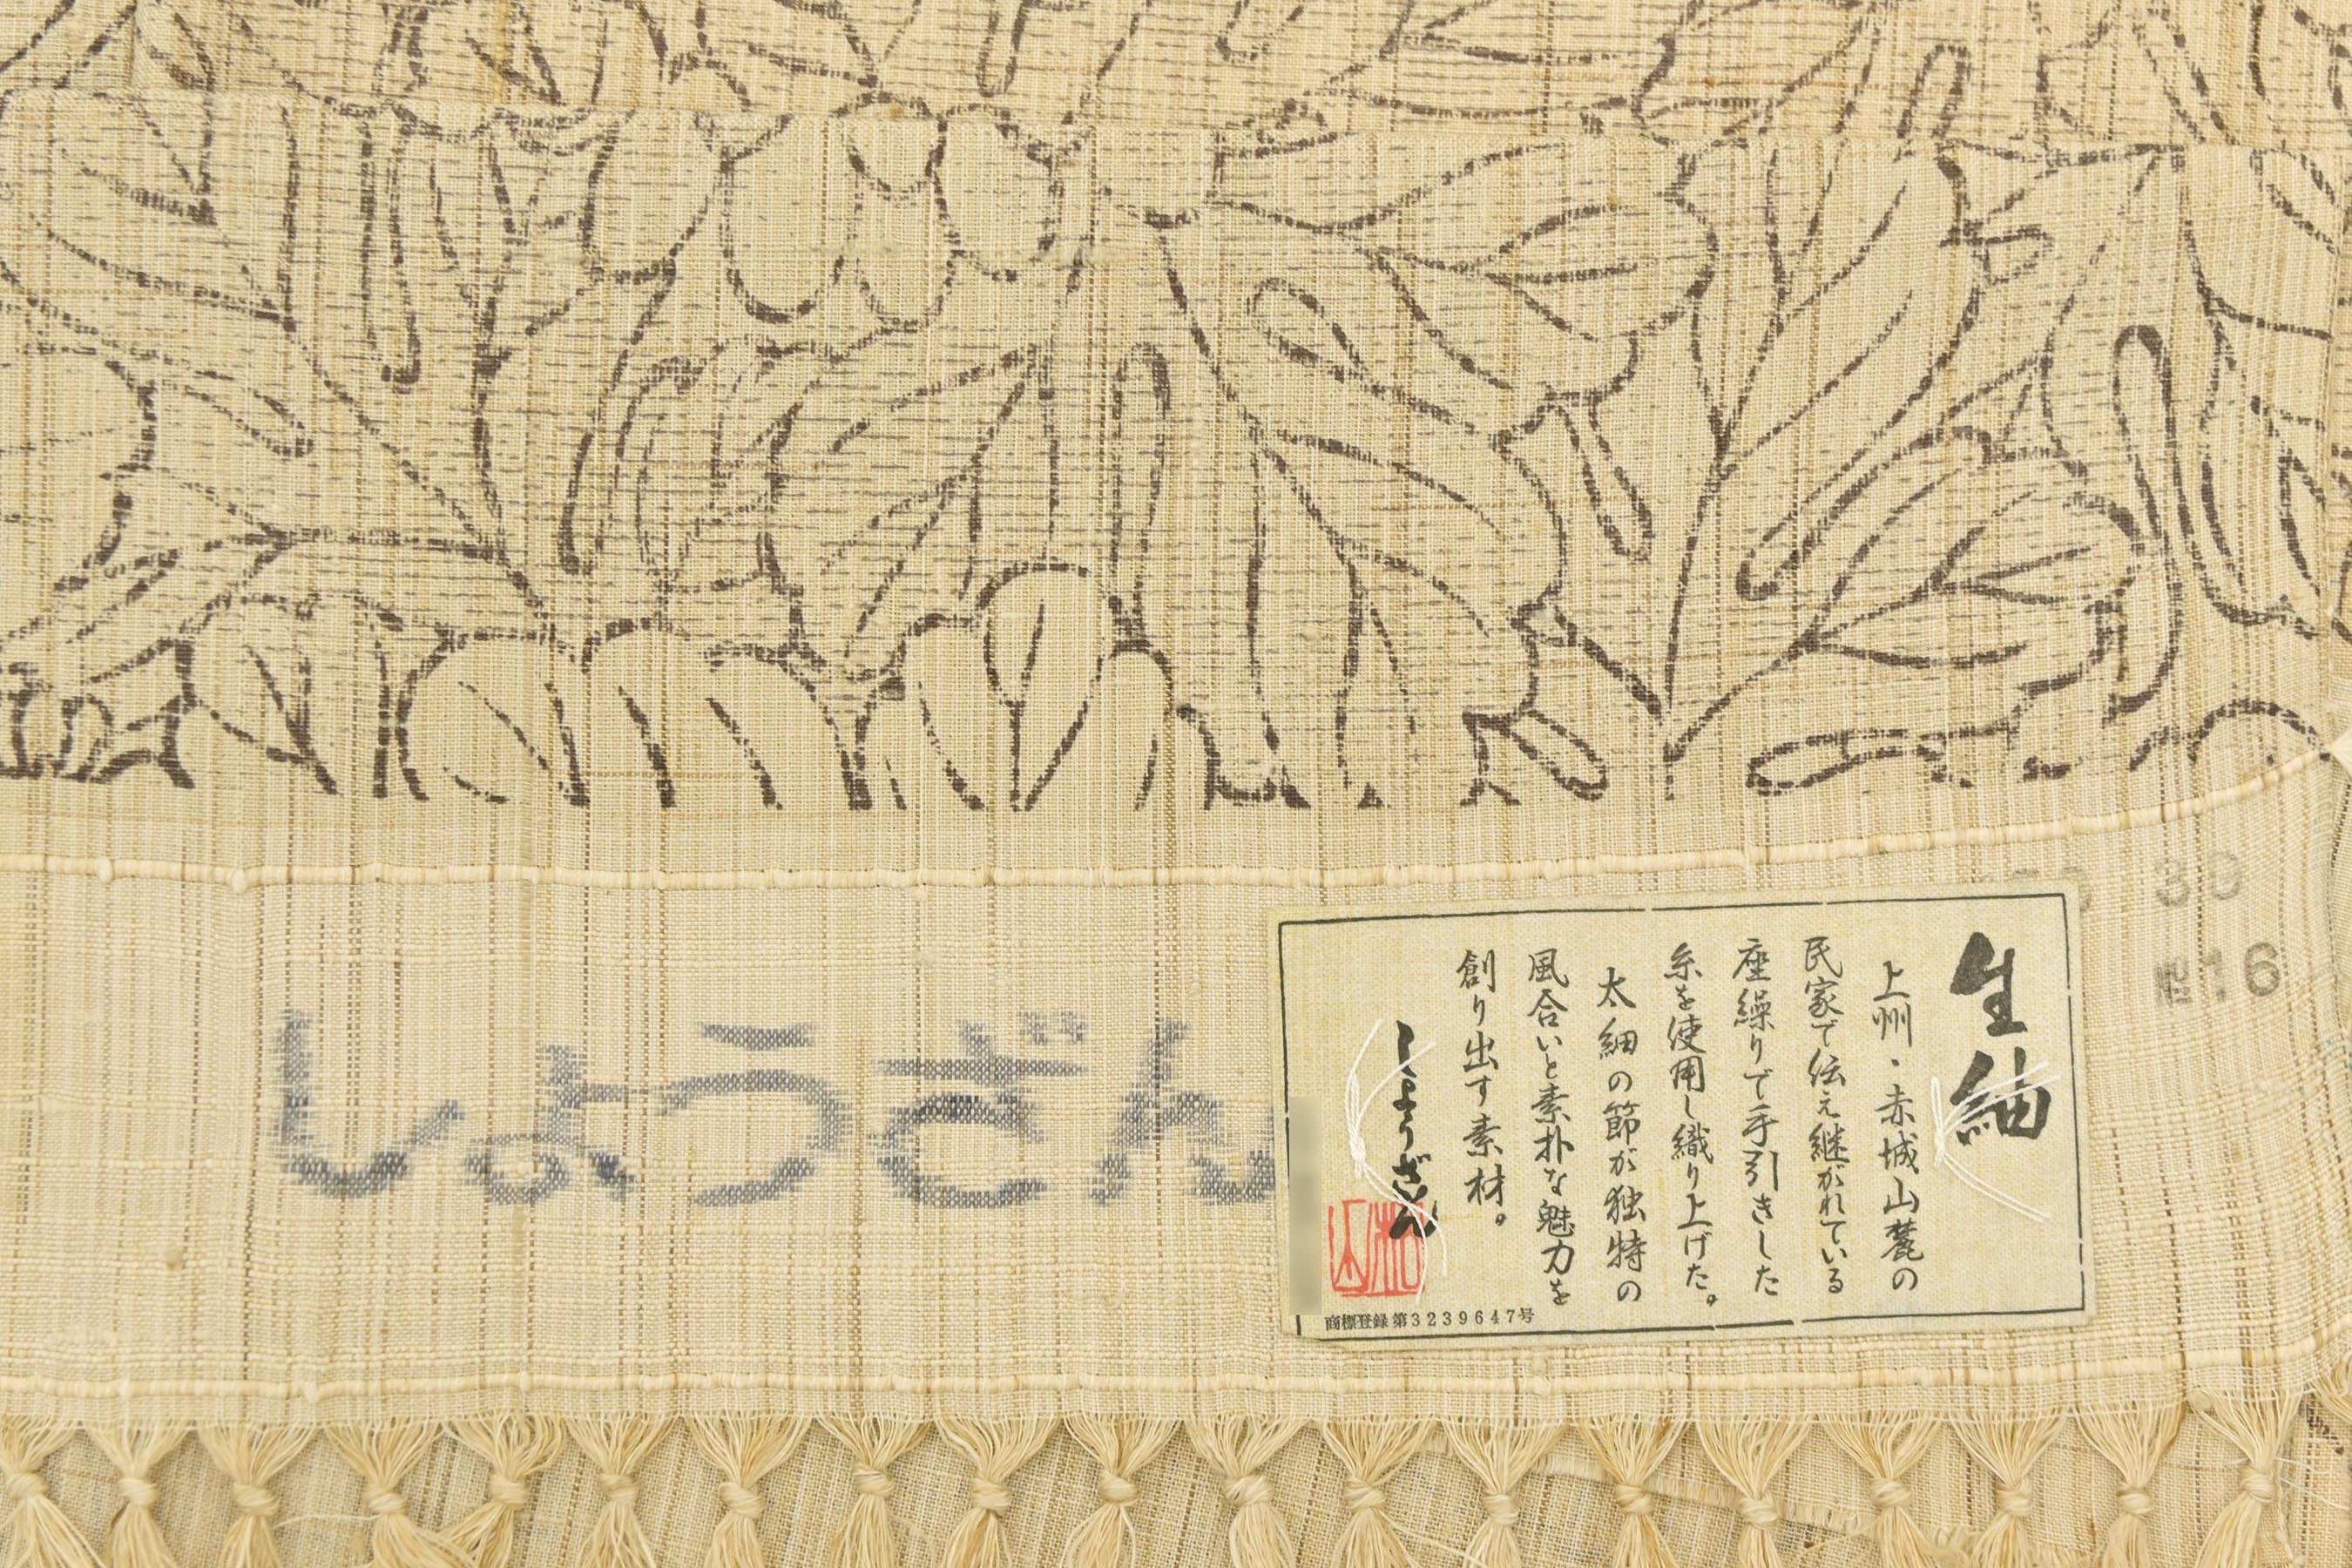 生紬
上州・赤城山麓の
民家で伝え継がれている
座繰りで手引きした
糸を使用し織り上げた。
太細の節が独特の
風合いと素朴な魅力を
創り出す素材。
しょうざん
商標登録第3239647号
しょうざん
30
16